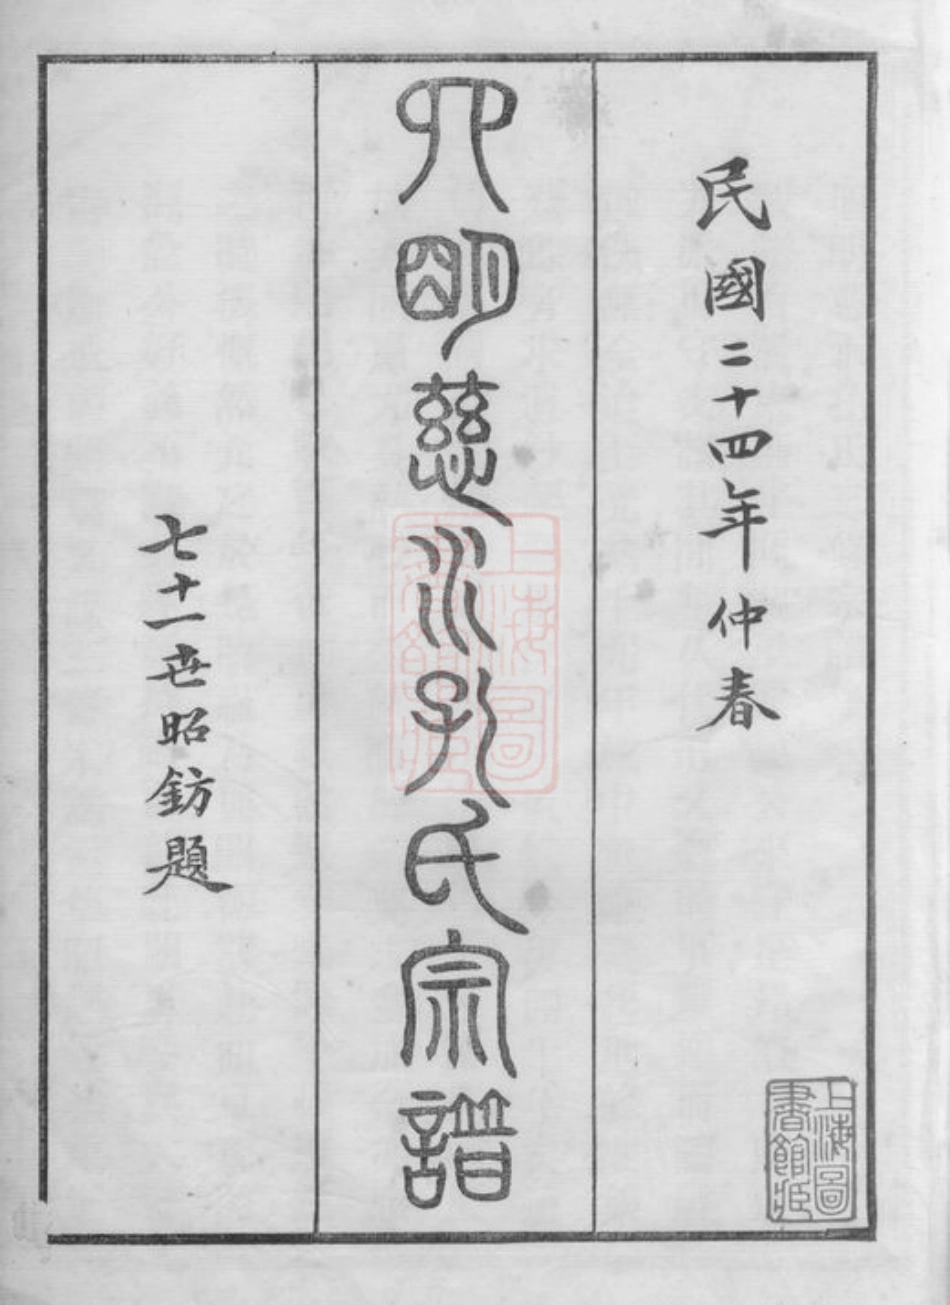 民國二十四年仲春
四明慈水孔氏宗譜
七十一世昭鈁題
上海圖
書館藏
上海圖
書館藏